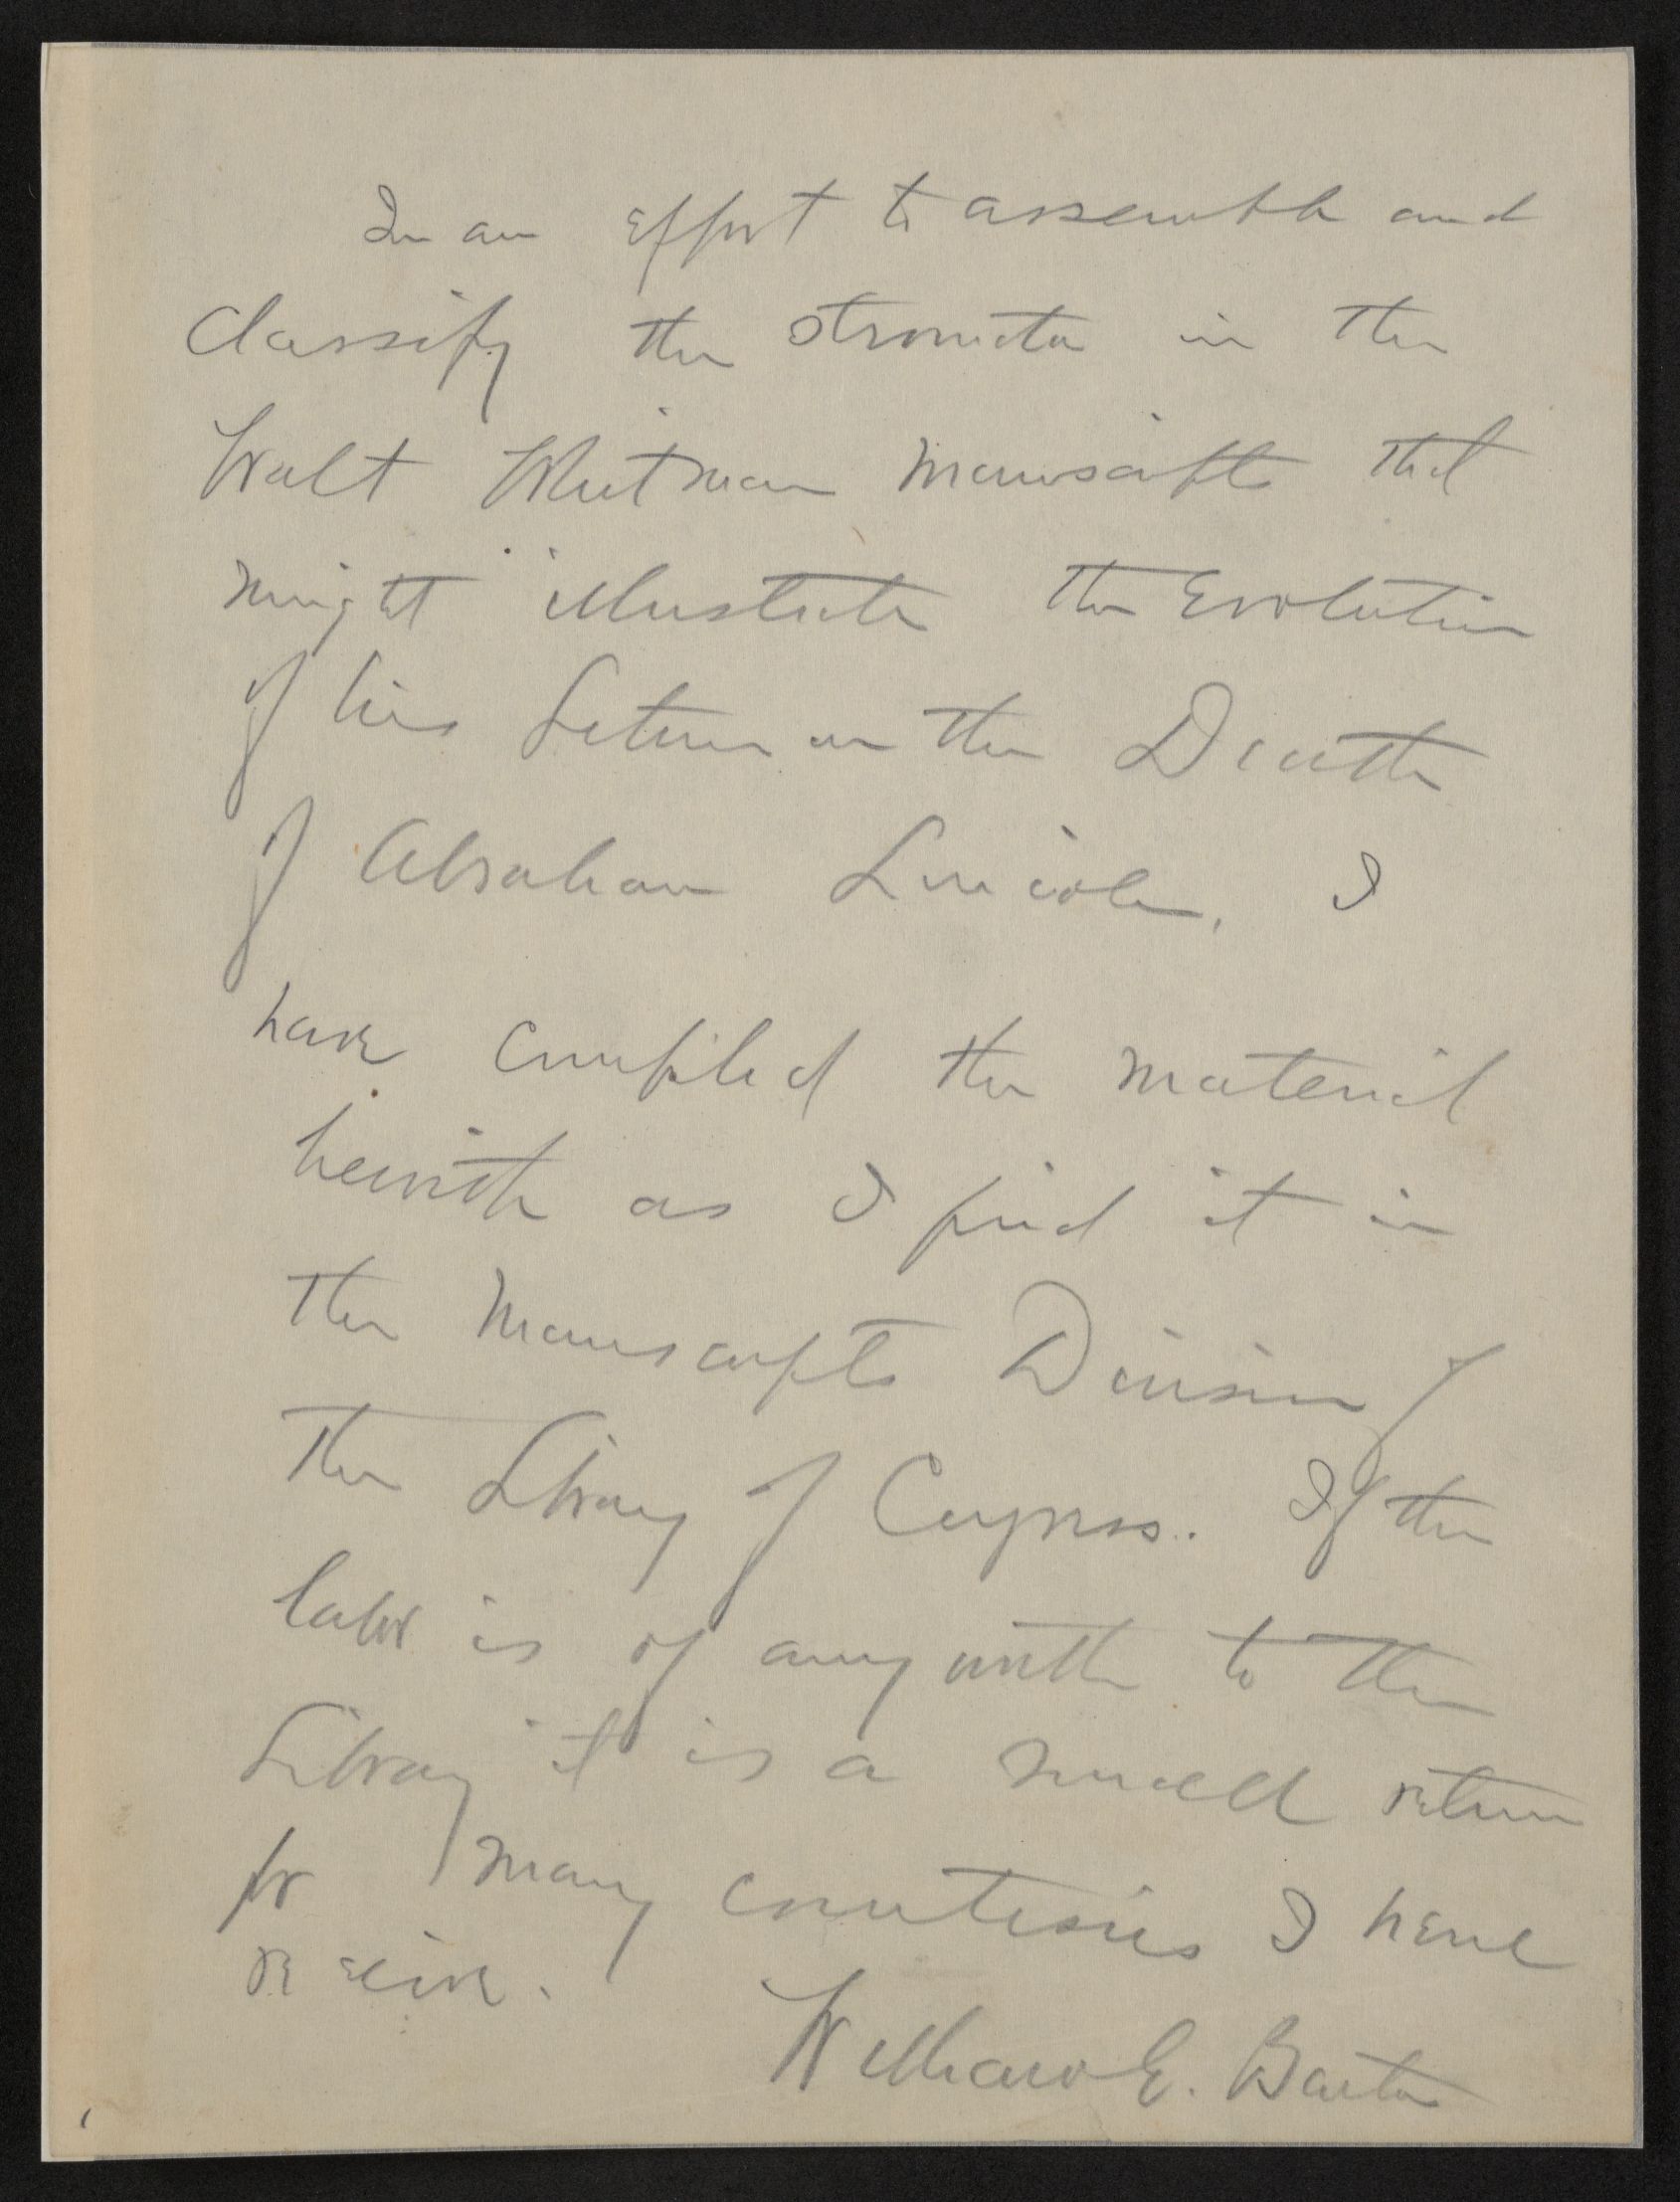 In an effort to assemble and
classify the stromata in the
Walt Whitman Manuscripts that
might illustrate the evolution
of his Lecture on the Death
of Abraham Lincoln, I
have compiled the material
herewith as I find it in
the Manuscripts Division of
the Library of Congress. If the
labor is of any worth to the
Library it is a small return
for many courtesies I have
receive.
William E. Barton